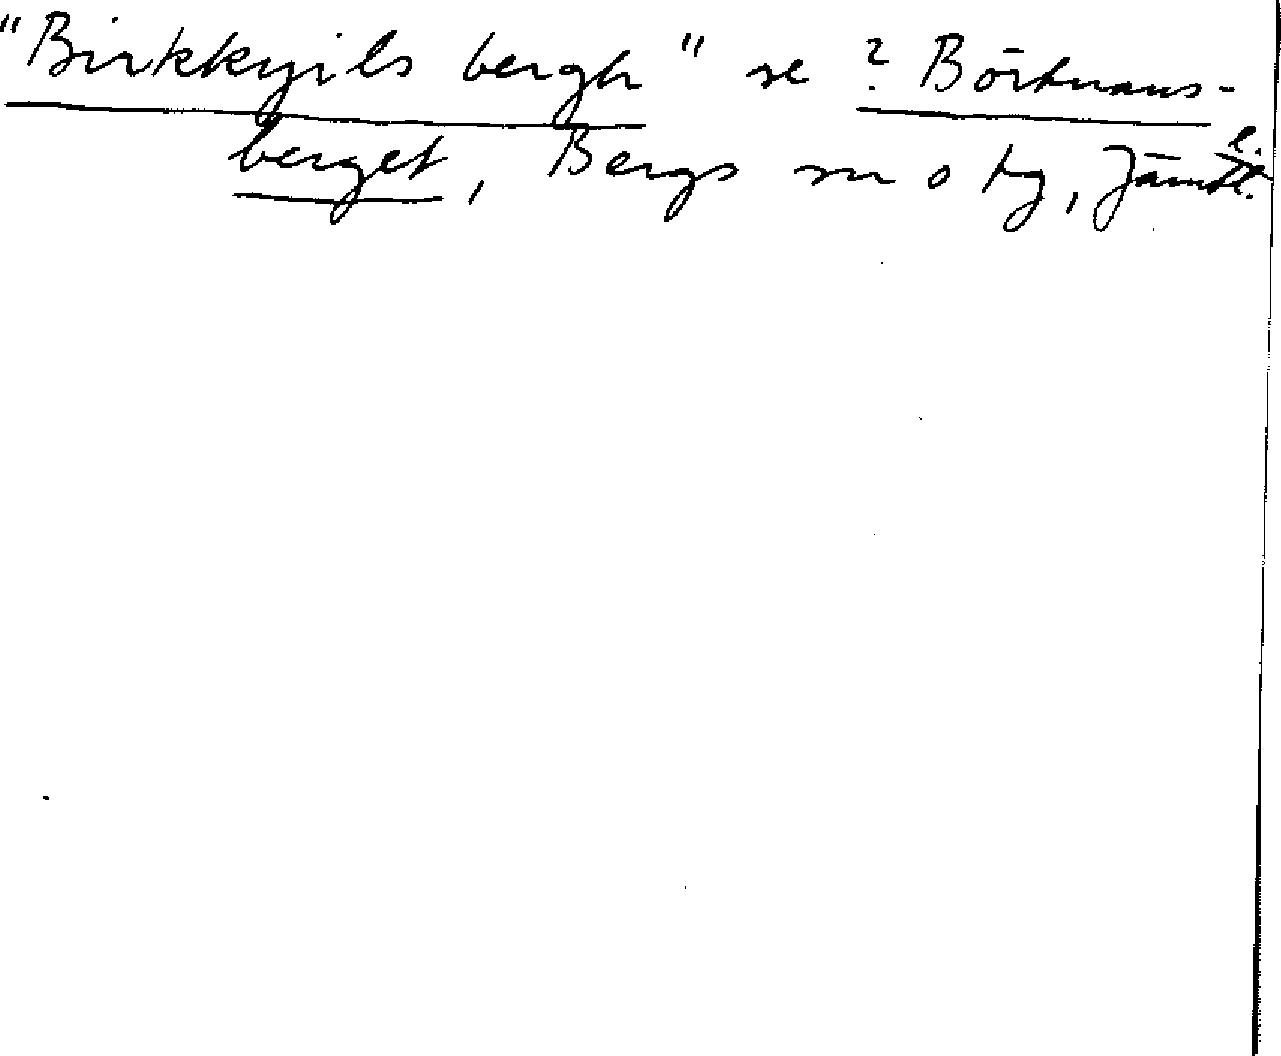 "Birkkyils bergh" se ? Börtnans-
berget, Bergs sn o tg, Jämtl.